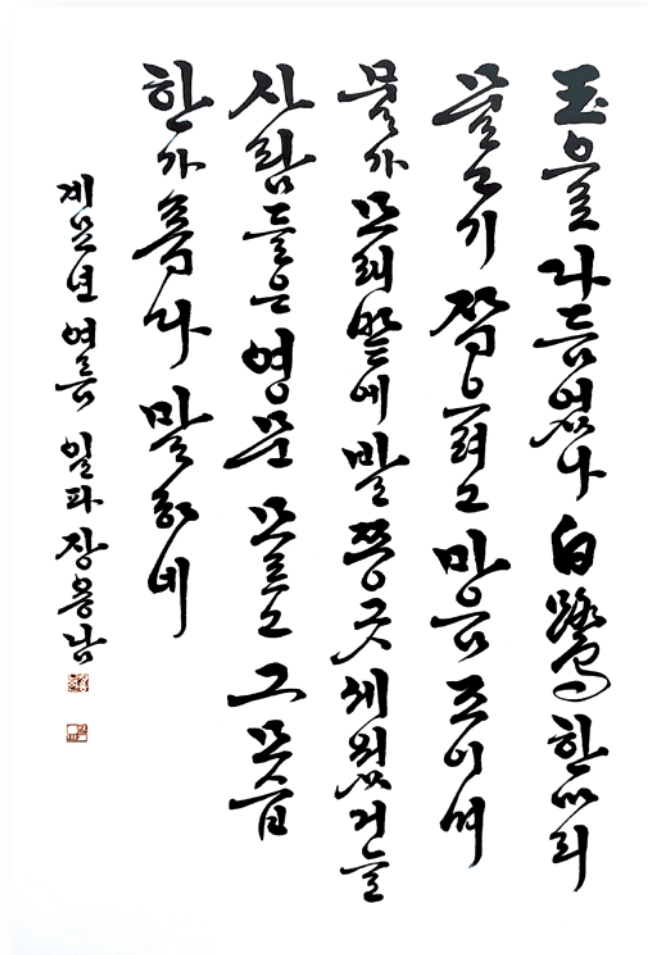 玉을 다듬었나 白鷺 한 마리
물고기 쪼으려고 마음 조이며
물가 모래밭에 발 쫑긋 세웠거늘
사람들은 영문 모르고 그 모습
한가롭다 말하네
계묘년 여름 일파 장용남